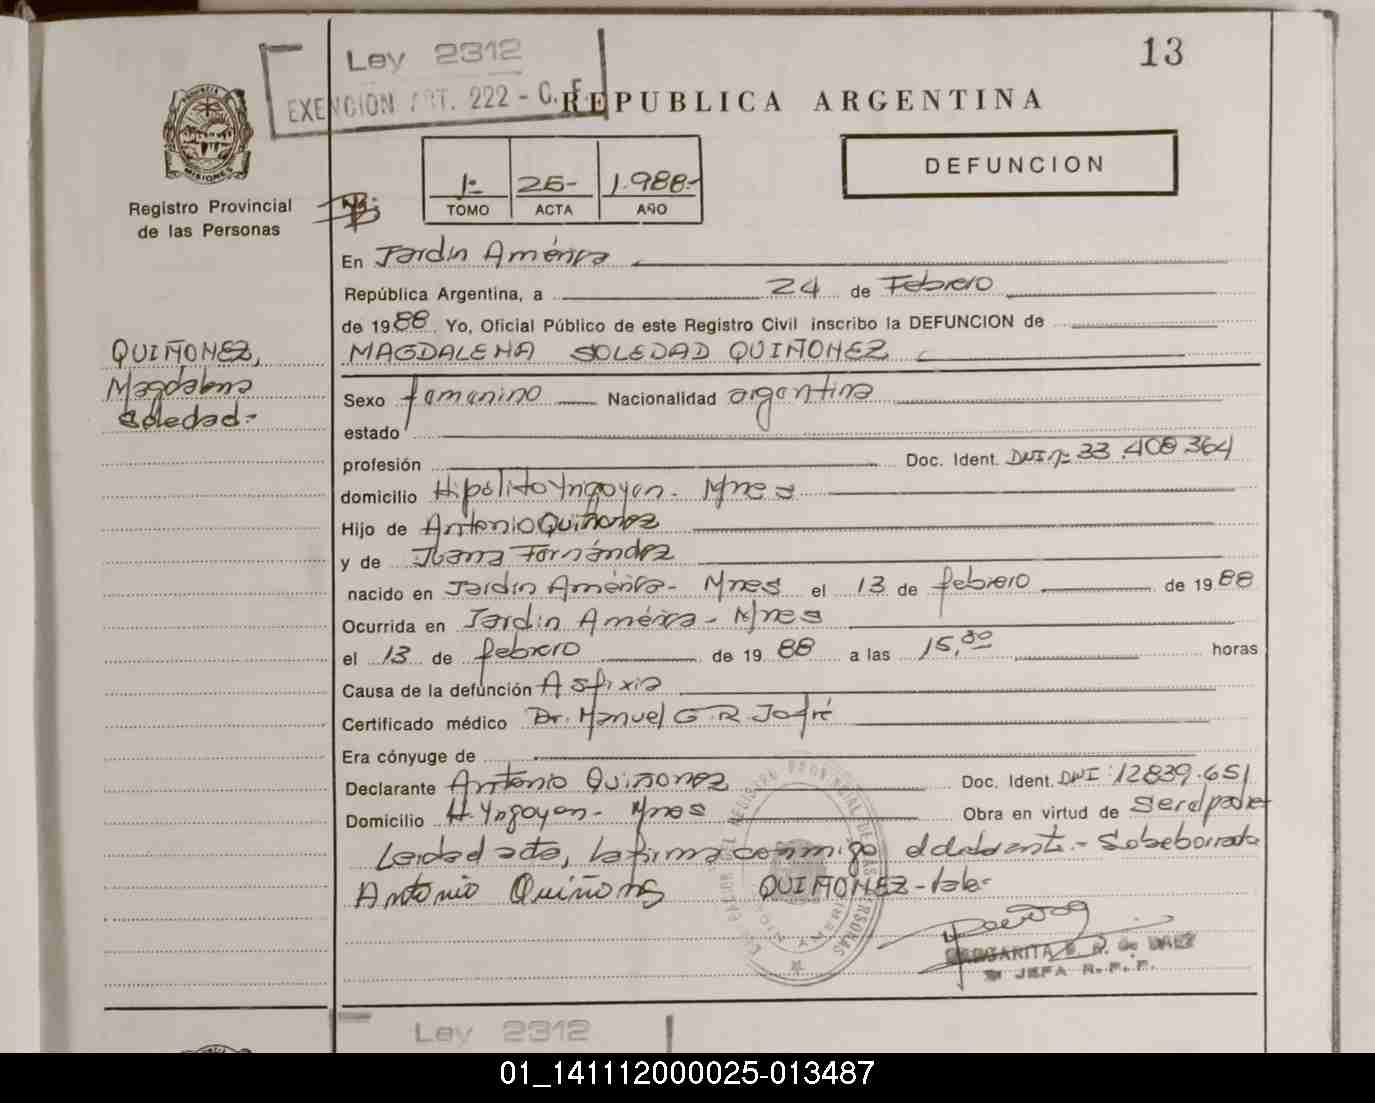 13
Ley 2312
EXENCION ART. 222 - C. F.
REPUBLICA ARGENTINA
DEFUNCION
PROVINCIA DE MISIONES
Registro Provincial
de las Personas
1º 25- 1.988-
TOMO ACTA AÑO
En Jardín América
República Argentina, a 24 de Febrero
de 1988 Yo, Oficial Público de este Registro Civil inscribo la DEFUNCION de
MAGDALENA SOLEDAD QUIÑONEZ
QUIÑONEZ,
Magdalena
Soledad-
Sexo femenino Nacionalidad argentina
estado
profesión Doc. Ident. DNI nº 33.408.364
domicilio Hipólito Yrigoyen- Mnes
Hijo de Antonio Quiñonez
y de Juana Fernández
nacido en Jardín América- Mnes el 13 de febrero de 1988
Ocurrida en Jardín América - Mnes
el 13 de febrero de 1988 a las 15,30 horas
Causa de la defunción Asfixia
Certificado médico Dr. Manuel G. R. Jofré
Era cónyuge de
Declarante Antonio Quiñonez Doc. Ident. DNI 12839.651
Domicilio H. Yrigoyen- Mnes Obra en virtud de ser el padre
Leída el acta, la firma conmigo el declarante.- Sobreborrado
Antonio Quiñones QUIÑONEZ-Vale-
MARGARITA de
JEFA R.P.P.
Ley 2312
01_141112000025-013487